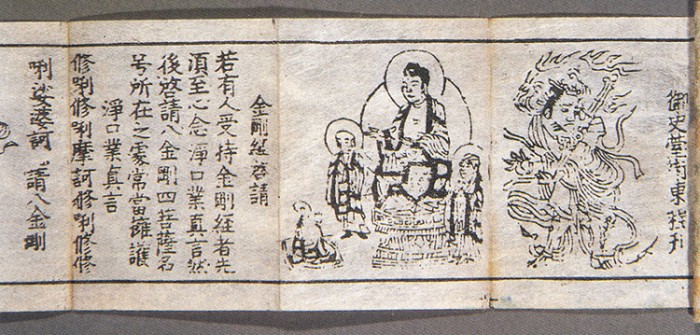 御史臺寺東撰刋
金剛經啓請
若有人受持金剛經者先
須至心念淨口業真言然
後啓請八金剛四菩薩名
号所在之處常當擁護
淨口業真言
修唎修唎摩訶修唎修修
唎娑婆訶 請八金剛